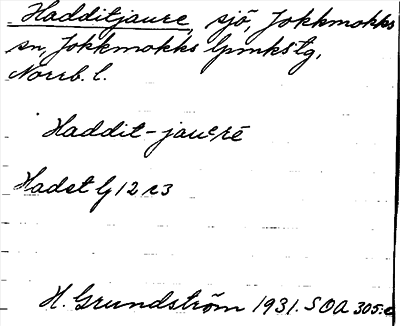 Hadditjaure, sjö, Jokkmokks
sn, Jokkmokks lpmkstg,
Norrb. l.
Haddit-jauᶜrē
Hadet G 12 c3
H. Grundström 1931. SOA 305:c